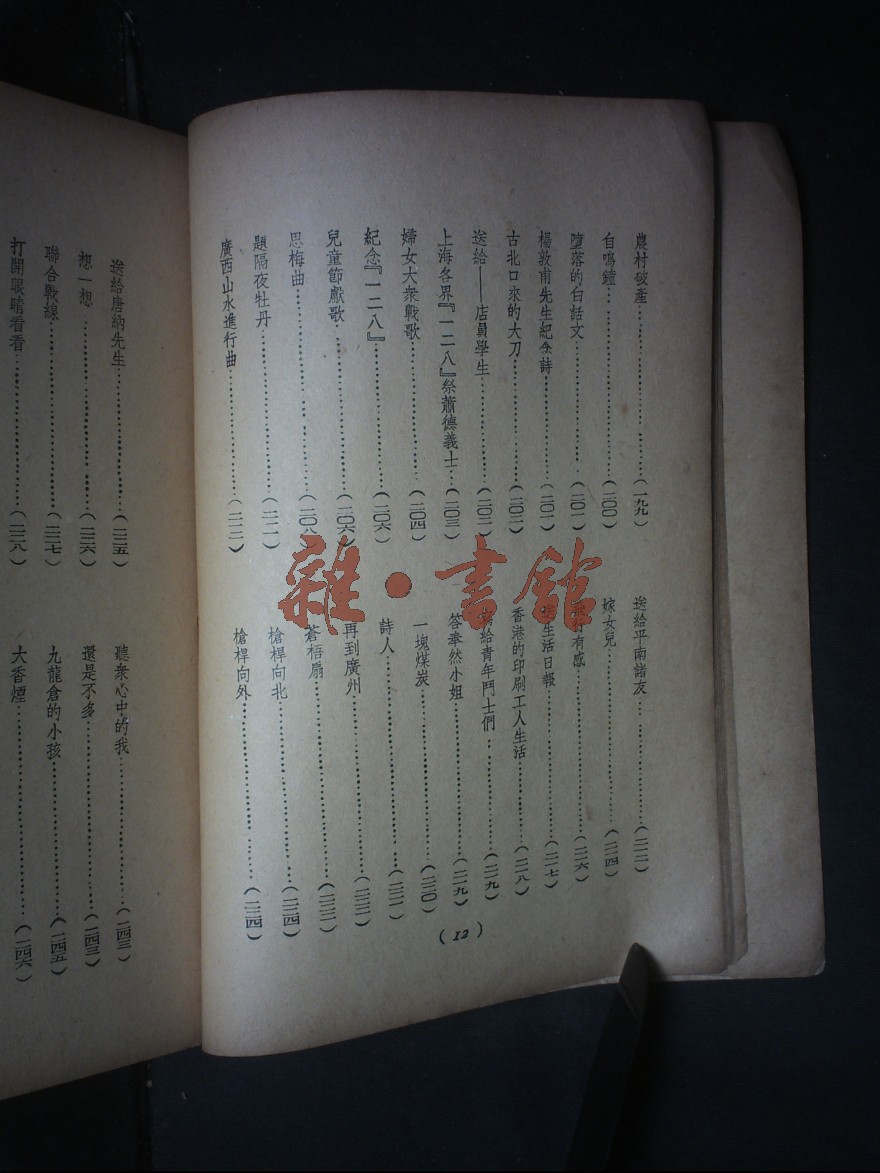 農村破產……(一九九)
自鳴鐘……(二〇〇)
墮落的白話文……(二〇一)
楊敦甫先生紀念詩……(二〇一)
古北口來的大刀……(二〇二)
送給——店員學生……(二〇二)
上海各界『一二八』祭蕭德義士…(二〇三)
婦女大衆戰歌……(二〇四)
紀念『一二八』……(二〇六)
兒童節獻歌……(二〇六)
思梅曲……(二〇八)
題隔夜牡丹……(二一一)
廣西山水進行曲……(二一二)
送給平南諸友……(二一二)
嫁女兒……(二一四)
行有感……(二一六)
生活日報……(二一七)
香港的印刷工人生活……(二一八)
給青年鬥士們……(二一九)
答奉然小姐……(二一九)
一塊煤炭……(二二〇)
詩人……(二二一)
再到廣州……(二二二)
蒼梧扇……(二二三)
槍桿向北……(二二四)
槍桿向外……(二二四)
(12)
送給唐納先生……(二三五)
想一想……(二三六)
聯合戰線……(二三七)
打開眼睛看看……(二三八)
聽衆心中的我……(二四三)
還是不多……(二四三)
九龍倉的小孩……(二四五)
大香煙……(二四六)
雜·書館